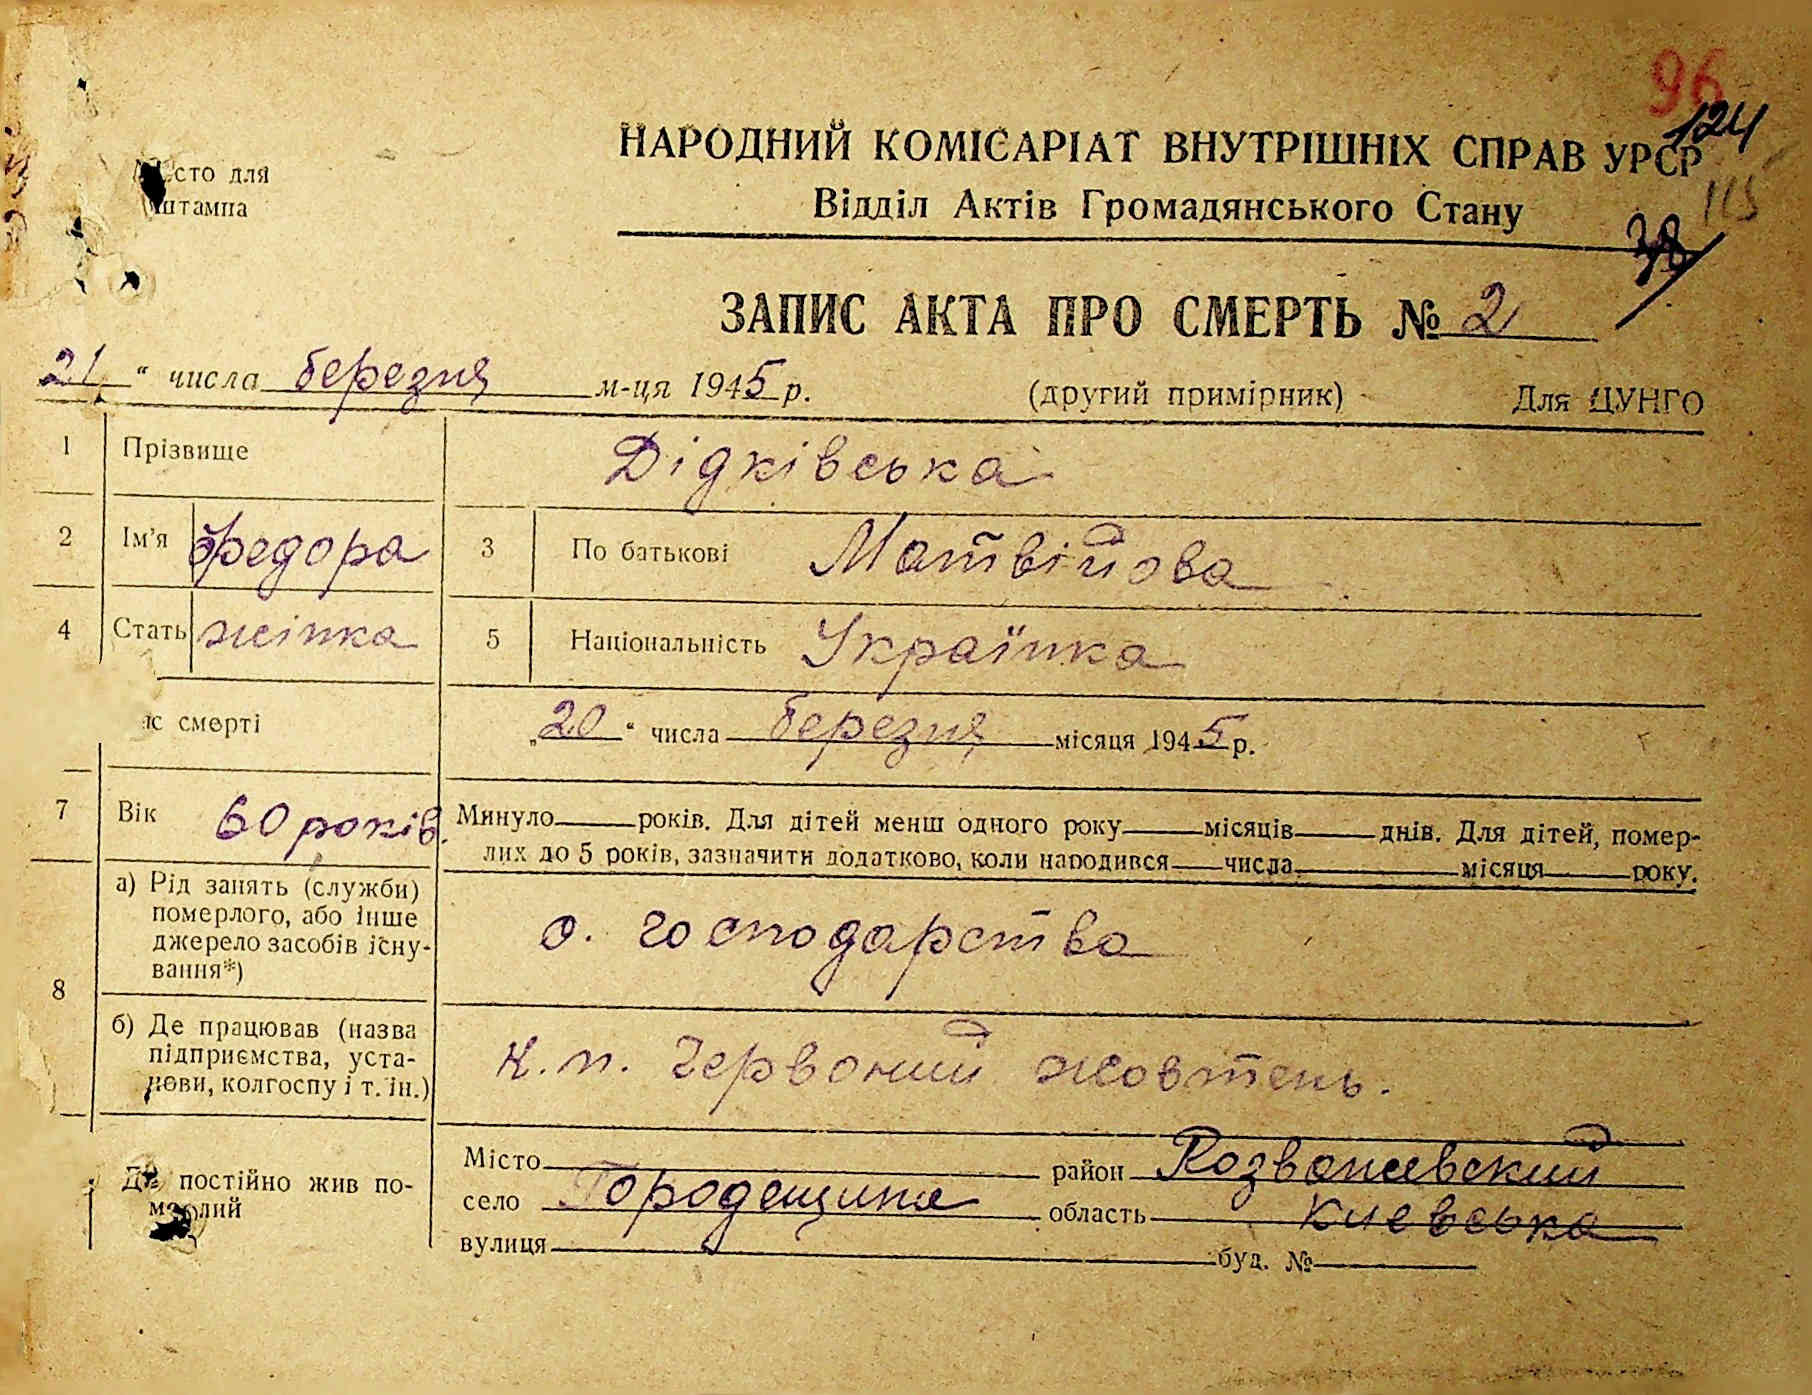 96
124
НАРОДНИЙ КОМІСАРІАТ ВНУТРІШНІХ СПРАВ УРСР
Місто для
штампа
Відділ Актів Громадянського Стану
115
38
ЗАПИС АКТА ПРО СМЕРТЬ № 2
21 “ числа березня м-ця 1945 р.
(другий примірник)
Для ЦУНГО
1 Прізвище Дідківська
2 Ім’я Федора 3 По батькові Матвійова
4 Стать жінка 5 Національність Українка
ас смерті „20“ числа березня місяця 1945 р.
7 Вік 60 років. Минуло року років. Для дітей менш одного року місяців днів. Для дітей, помер-
лих до 5 років, зазначити додатково, коли народився числа місяця року.
8 а) Рід занять (служби)
померлого, або інше
джерело засобів існу-
вання*)
о. господарства
б) Де працював (назва
підприємства, уста-
нови, колгоспу і т. ін.)
К.п. Червоний жовтень.
Де постійно жив по-
мерлий
Місто район Розважевский
село Городещина область Киевська
вулиця буд. №